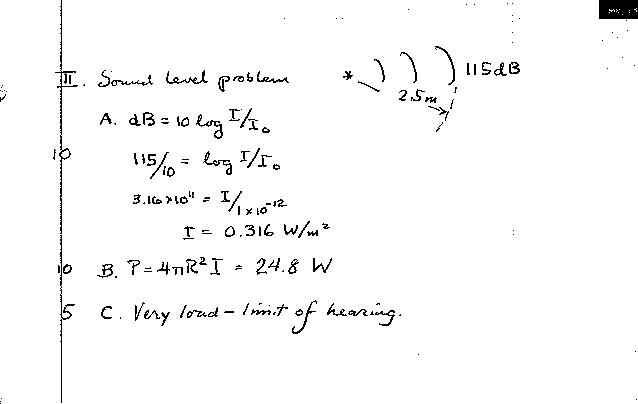 II. Sound level problem
* 115dB
2.5m
A. dB = 10 log I/I₀
10 115/10 = log I/I₀
3.16×10¹¹ = I/1×10⁻¹²
I = 0.316 W/m²
10 B. P = 4πR²I = 24.8 W
5 C. Very loud – limit of hearing.